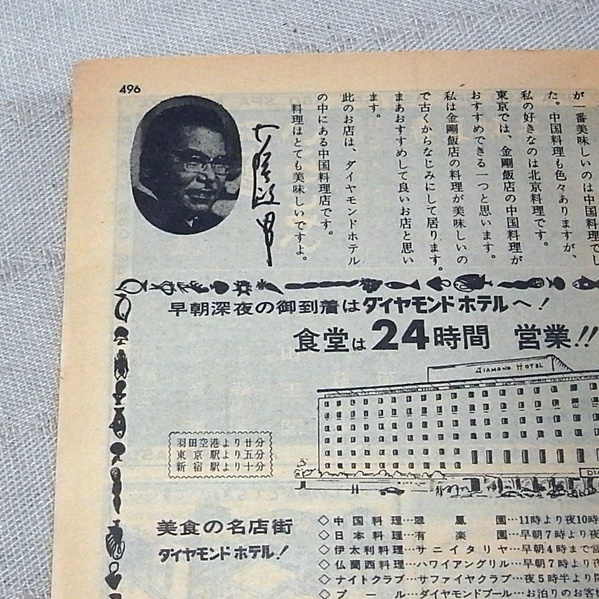 496
が一番美味しいのは中国料理でし
た。中国料理も色々ありますが、
私の好きなのは北京料理です。
東京では、金剛飯店の中国料理が
おすすめできる一つと思います。
私は金剛飯店の料理が美味しいの
で古くからなじみにして居ります。
まあおすすめして良いお店と思い
ます。
此のお店は、ダイヤモンドホテル
の中にある中国料理店です。
料理はとても美味しいですよ。
早朝深夜の御到着はダイヤモンドホテルへ!
食堂は24時間 営業!!
DIAMOND HOTEL
羽田空港より廿分
東京駅より五分
新宿駅より十分
美食の名店街
ダイヤモンドホテル!
◇中国料理…翠鳳園…11時より夜10時
◇日本料理…有楽園…早朝7時より夜
◇伊太利料理…サニイタリヤ…早朝4時まで営
◇仏蘭西料理…ハワイアングリル…早朝7時より夜
◇ナイトクラブ…サファイヤクラブ…夜5時半より
◇プール…ダイヤモンドプール…お泊りのお客様